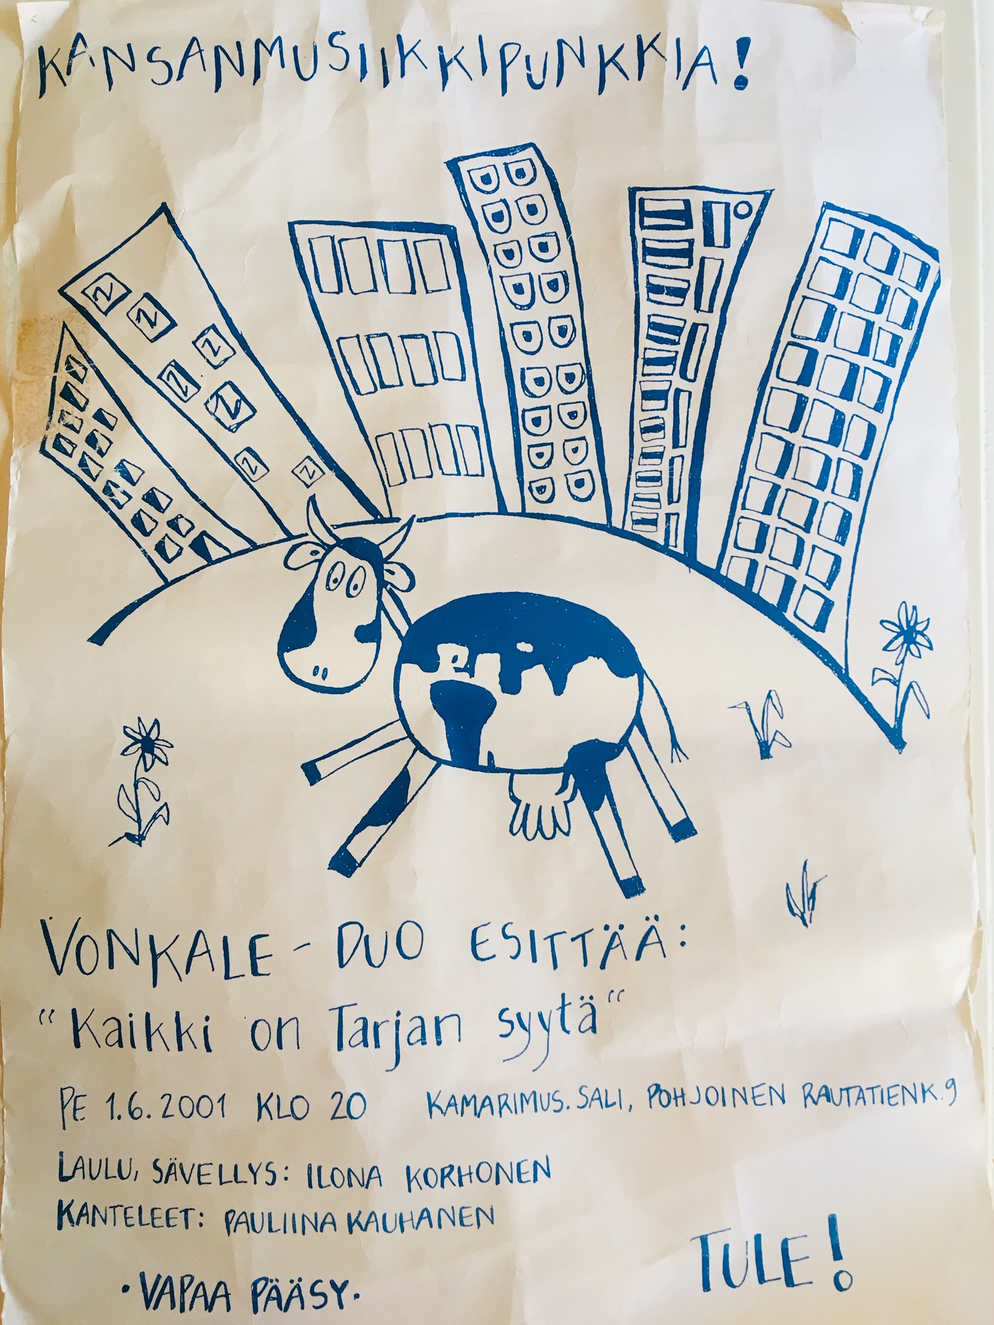 KANSANMUSIIKKIPUNKKIA!
VONKALE - DUO ESITTÄÄ:
“Kaikki on Tarjan syytä“
PE 1.6.2001 KLO 20 KAMARIMUS. SALI, POHJOINEN RAUTATIENK. 9
LAULU, SÄVELLYS: ILONA KORHONEN
KANTELEET: PAULIINA KAUHANEN
TULE!
•VAPAA PÄÄSY•